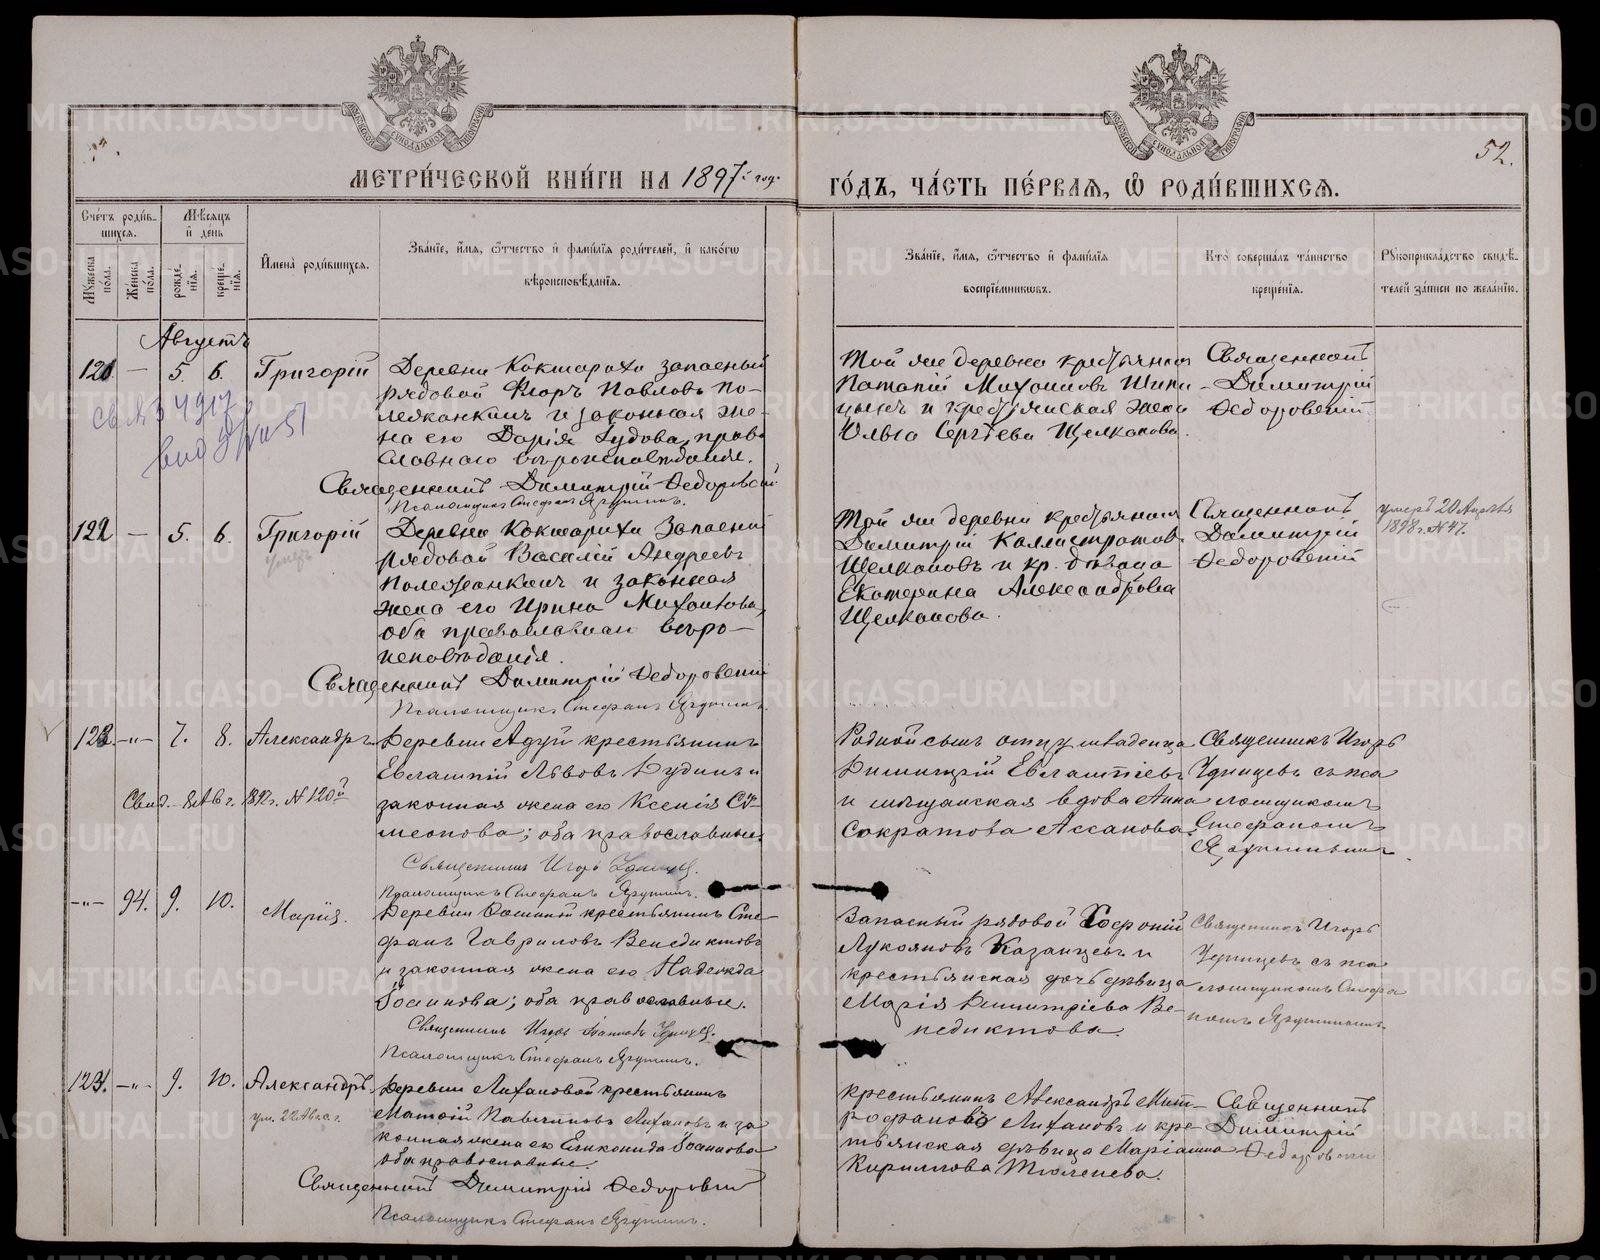 52.
МЕТРИ́ЧЕСКОЙ КНИ́ГИ НА 1897й год.
ГО́ДЪ, ЧА́СТЬ ПЕ́РВАЯ, Ѽ РОДИ́ВШИХСЯ.
Сче́тъ роди́в-
шихся.
Му́жеска по́ла.
Же́нска по́ла.
Мѣ́сяцъ
и҆ де́нь
рожде́-
нїя.
креще́-
нїя.
И҆мена̀ роди́вшихся.
Зва́нїе, и҆́мя, ѻ҆́тчество и҆ фами́лїя роди́телей, и҆ како́гѡ
вѣроисповѣ́данїя.
Зва́нїе, и҆́мя, ѻ҆́тчество и҆ фами́лїя
воспрїе́мникѡвъ.
Кто̀ соверша́лъ та́инство
креще́нїя.
Рꙋкоприкла́дство свидѣ́-
телей за́писи по жела́нїю.
Августъ
121. — 5. 6. Григорій
Деревни Кокшарихи запасный
рядовой Флоръ Павловъ По-
лежанкинъ и законная же-
на его Дарія Іудова, право
славнаго вѣроисповѣданія.
Священникъ Димитрій Ѳедоровскій
Псаломщикъ Стефанъ Ягутинъ.
Той же деревни крестьянинъ
Потапій Михаиловъ Шипи
цынъ и крестьянская жена
Ольга Сергѣева Щелканова.
Священникъ
Димитрій
Ѳедоровскій
122 — 5. 6. Григорій
умеръ
Деревни Кокшарихи Запасный
рядовой Василій Андреевъ
Полежанкинъ и законная
жена его Ирина Михаилова,
оба православнаго вѣро-
исповѣданія.
Священникъ Димитрій Ѳедоровскій
Псаломщикъ Стефанъ Ягутинъ.
Той же деревни крестьянинъ
Димитрій Каллистратовъ
Щелкановъ и кр. дѣвица
Екатерина Александрова
Щелканова.
Священникъ
Димитрій
Ѳедоровскій
умеръ 20 Апрѣля
1898 г. № 47.
123. —"— 7. 8. Александръ.
Свид. - 8 Авг. 1897 г. № 120й
Деревни Адуй крестьянинъ
Евлампій Львовъ Кудинъ и
законная жена его Ксенія Си-
меонова; оба православные.
Священникъ Игорь
Псаломщикъ Стефанъ Ягутинъ.
Родной сынъ отцу младенца
Димитрій Евлампіевъ
и мѣщанская вдова Анна
Сократова Ассанова.
Священникъ Игорь
съ пса
ломщикомъ
Стефаномъ
Ягутинымъ.
—"— 94. 9. 10. Марія.
крестьянинъ Сте-
фанъ Гавриловъ Венедиктовъ
и законная жена его Надежда
Іоаннова; оба православные.
Священникъ
Псаломщикъ Стефанъ Ягутинъ.
Запасный рядовой Софроній
Лукояновъ Казанцевъ и
крестьянская дочь дѣвица
Марія Димитріева Ве-
недиктова.
Священникъ Игорь
съ пса
ломщикомъ Стефа
номъ Ягутинымъ.
124. —"— 9. 10. Александръ.
ум. 22 Авг.
Деревни Лихановой крестьянинъ
Матѳій Лихановъ и за
конная жена его Еликонида Іоаннова
оба православные.
Священникъ Димитрій Ѳедоровскій
Псаломщикъ Стефанъ Ягутинъ.
крестьянинъ Александръ Мит-
рофановъ Лихановъ и кре-
стьянская дѣвица Маріанна
Кириллова Тюленева.
Священникъ
Димитрій
Ѳедоровскій
METRIKI.GASO-URAL.RU